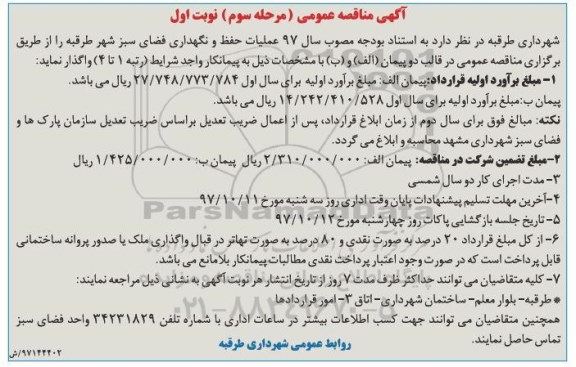 آگهی مناقصه عمومی (مرحله سوم) نوبت اول
شهرداری طرقبه در نظر دارد به استناد بودجه مصوب سال ۹۷ عملیات حفظ و نگهداری فضای سبز شهر طرقبه را از طریق
برگزاری مناقصه عمومی در قالب دو پیمان (الف) و (ب) با مشخصات ذیل به پیمانکار واجد شرایط (رتبه ۱ تا ۴) واگذار نماید:
۱- مبلغ برآورد اولیه قرارداد: پیمان الف: مبلغ برآورد اولیه برای سال اول ۲۷/۷۴۸/۷۷۳/۷۸۴ ریال می باشد.
پیمان ب: مبلغ برآورد اولیه برای سال اول ۱۴/۲۴۲/۴۱۰/۵۲۸ ریال می باشد.
نکته: مبالغ فوق برای سال دوم از زمان ابلاغ قرارداد، پس از اعمال ضریب تعدیل براساس ضریب تعدیل سازمان پارک ها و
فضای سبز شهرداری مشهد محاسبه و ابلاغ می گردد.
۲- مبلغ تضمین شرکت در مناقصه: پیمان الف: ۲/۳۱۰/۰۰۰/۰۰۰ ریال پیمان ب: ۱/۴۲۵/۰۰۰/۰۰۰ ریال
۳- مدت اجرای کار دو سال شمسی
۴- آخرین مهلت تسلیم پیشنهادات پایان وقت اداری روز سه شنبه مورخ ۹۷/۱۰/۱۱
۵- تاریخ جلسه بازگشایی پاکات روز چهارشنبه مورخ ۹۷/۱۰/۱۲
۶- از کل مبلغ قرارداد ۲۰ درصد به صورت نقدی و ۸۰ درصد به صورت تهاتر در قبال واگذاری ملک یا صدور پروانه ساختمانی
قابل پرداخت است که در صورت وجود اعتبار پرداخت نقدی مطالبات پیمانکار بلامانع می باشد.
۷- کلیه متقاضیان می توانند حداکثر ظرف مدت ۷ روز از تاریخ انتشار هر نوبت آگهی به نشانی ذیل مراجعه نمایند:
* طرقبه- بلوار معلم- ساختمان شهرداری- اتاق ۳- امور قراردادها
همچنین متقاضیان می توانند جهت کسب اطلاعات بیشتر در ساعات اداری با شماره تلفن ۳۴۲۳۱۸۲۹ واحد فضای سبز
تماس حاصل نمایند.
روابط عمومی شهرداری طرقبه
۹۷۱۴۴۴۰۲/ش
ParsNamadData
۰۲۱-۸۸۳۴۹۶۷۰-۵